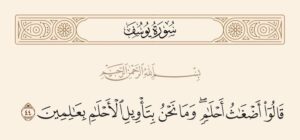 سُورَةُ يُوسُفَ
بِسْمِ ٱللَّهِ ٱلرَّحْمَٰنِ ٱلرَّحِيمِ
قَالُوٓا۟ أَضْغَٰثُ أَحْلَٰمٍ ۖ وَمَا نَحْنُ بِتَأْوِيلِ ٱلْأَحْلَٰمِ بِعَٰلِمِينَ ٤٤